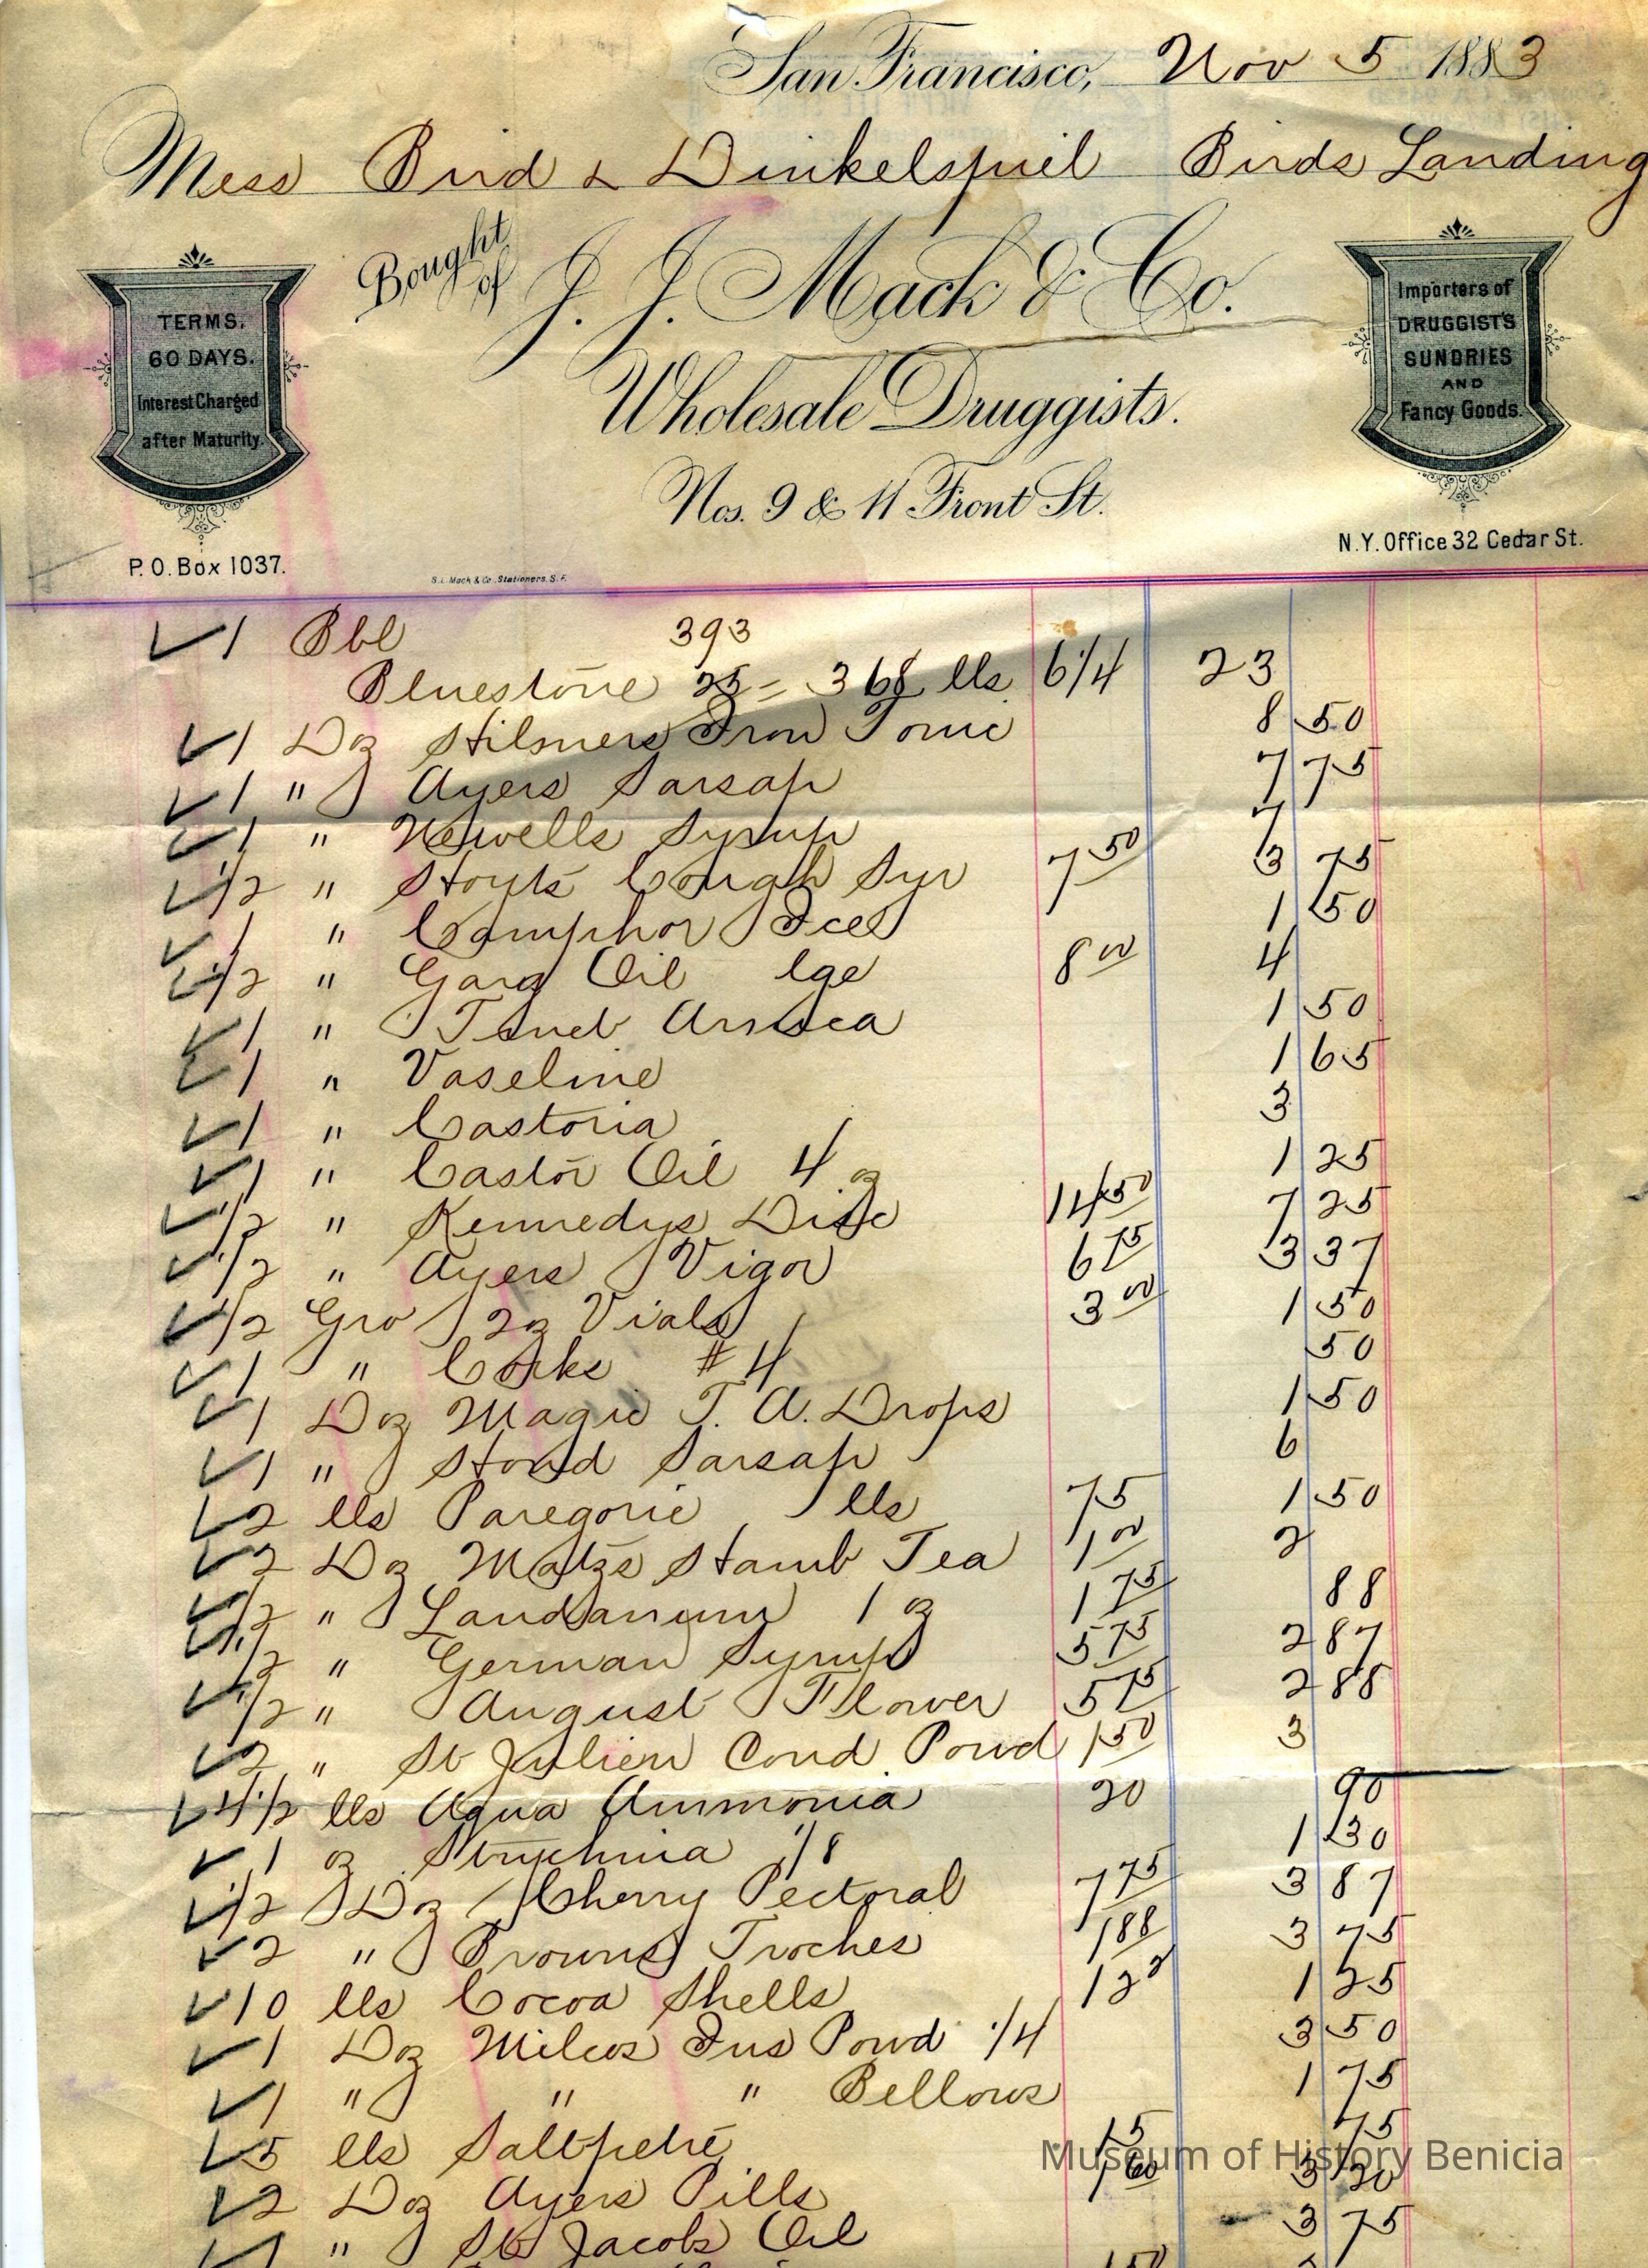 San Francisco, Nov 5 1883
Mess Bird & Dinkelspiel Birds Landing
Bought of J. J. Mack & Co.
TERMS.
60 DAYS.
Interest Charged
after Maturity.
Importers of
DRUGGISTS
SUNDRIES
AND
Fancy Goods.
Wholesale Druggists.
Nos. 9 & 11 Front St.
P.O. Box 1037.
N.Y. Office 32 Cedar St.
S.L. Mack & Co. Stationers. S.F.
1 Bbl 393
Bluestone 25 = 368 lbs 6 1/4 23
1 Doz Iron Tonic 8 50
1 " Ayers Sarsap 7 75
1 " Newells Syrup 7
1/2 " Cough Syr 7 50 3 75
1 " Camphor Ice 1 50
1/2 " Garg Oil lge 8 00 4
1 " Tinct Arnica 1 50
1 " Vaseline 1 65
1 " Castoria 3
1 " Castor Oil 4 oz 1 25
1/2 " Kennedys Disc 14 50 7 25
1/2 " Ayers Vigor 6 75 3 37
1/2 Gro 2 oz Vials 3 00 1 50
1 " Corks # 4 50
1 Doz Magic T. A. Drops 1 50
1 " Sarsap 6
2 lbs Paregoric lbs 75 1 50
2 Doz Tea 1 00 2
1/2 " Laudanum 1 oz 1 75 88
1/2 " German Syrup 5 75 2 87
1/2 " August Flower 5 75 2 88
2 " St Julien Cond. Powd 1 50 3
4 1/2 lbs Aqua Ammonia 20 90
1 oz Strychnia 1/8 1 30
1/2 Doz Cherry Pectoral 7 75 3 87
2 " Browns Troches 1 88 3 75
10 lbs Cocoa Shells 1 25
1 Doz Milcos Ins Powd 1/4 3 50
1 " " " Bellows 1 75
5 lbs Saltpetre 15 75
2 Doz Ayers Pills 1 60 3 20
1 " St Jacobs Oil 3 75
Museum of History Benicia